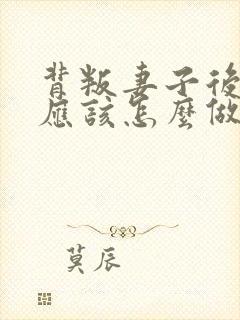 背叛妻子後
應該怎麼做
莫辰